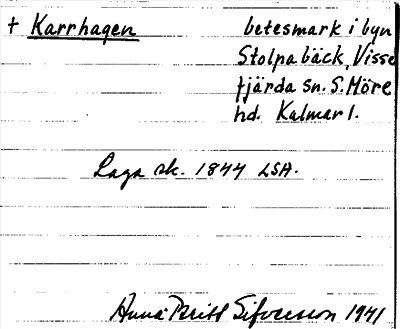 + Karrhagen betesmark i byn
Stolpabäck, Visse
fjärda sn. S. Möre
hd. Kalmar l.
Laga sk. 1844 LSA.
Anna-Britt Sifversson 1941